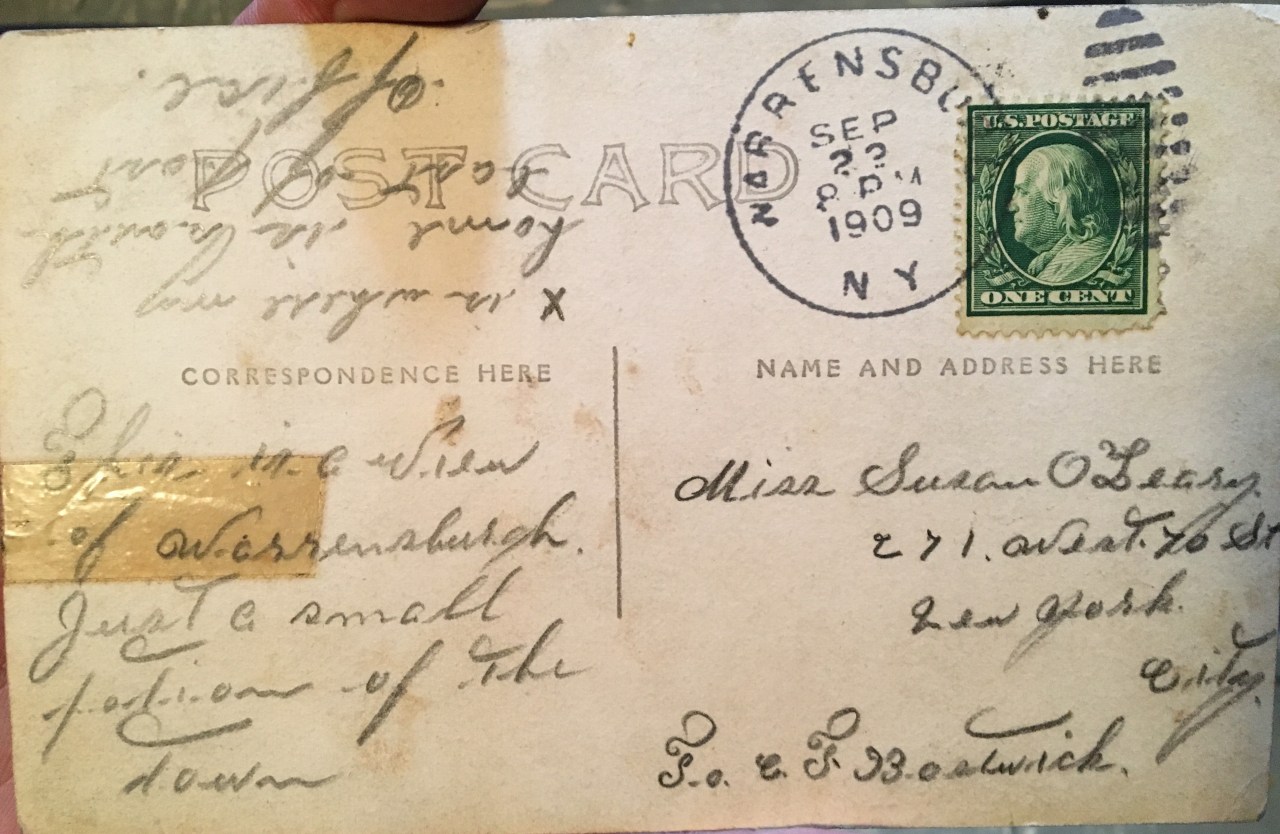 POST CARD
WARRENSBU
SEP
22
8 PM
1909
N Y
U.S. POSTAGE
ONE CENT
CORRESPONDENCE HERE
NAME AND ADDRESS HERE
This is a view
of Warrensburgh.
Just a small
potion of the
town
X is where my
home is North
east of post
office.
Miss Susan O'Leary.
271. West. 70 St
New York.
City.
C. F Bostwick.